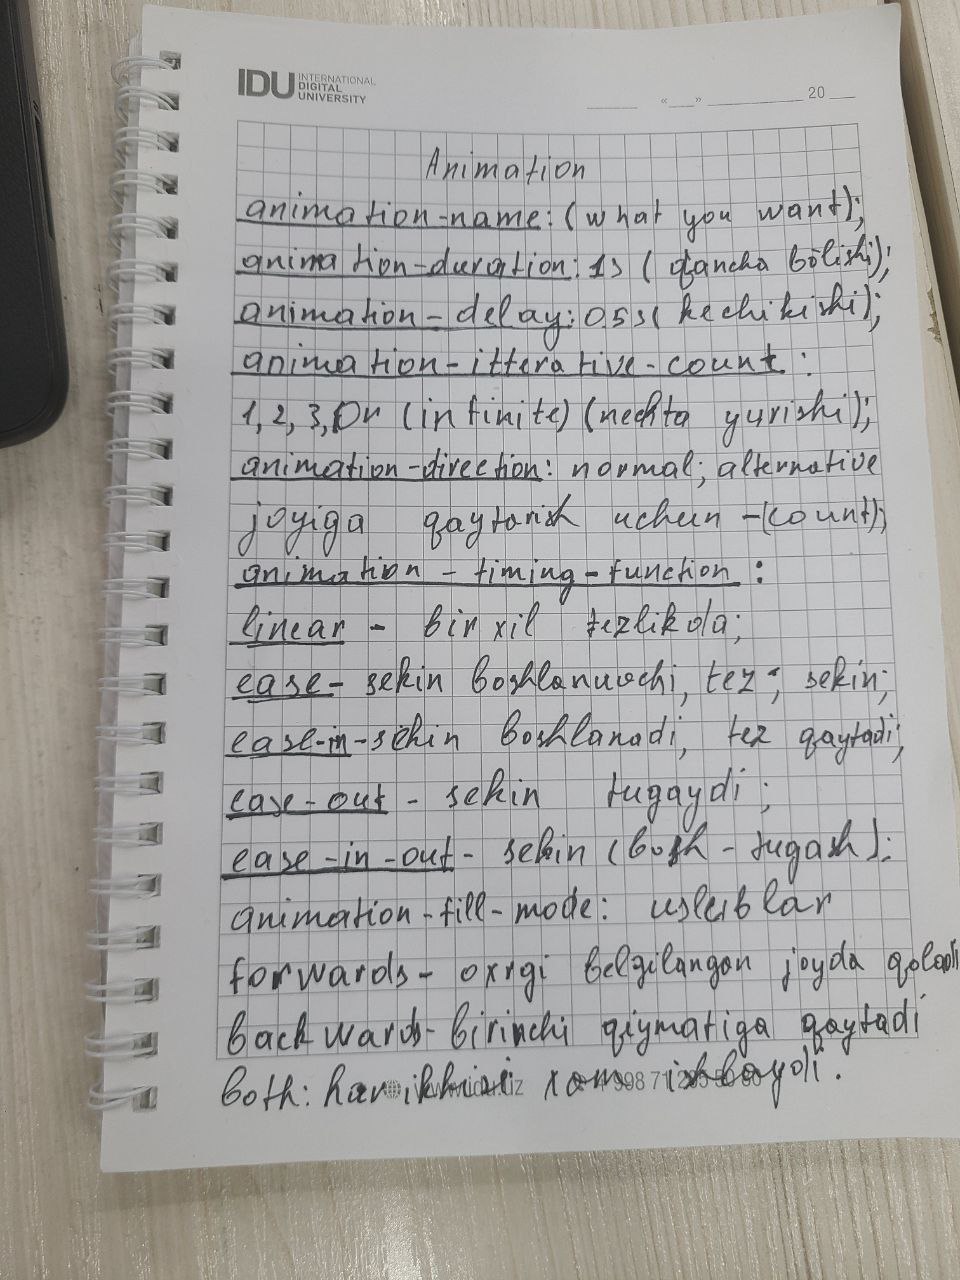 IDU INTERNATIONAL DIGITAL UNIVERSITY
«__» 20
Animation
animation-name: (what you want);
animation-duration: 1s (qancha bölishi);
animation-delay: 05s (kechikishi);
animation-itterative-count:
1, 2, 3, Or (infinite) (nechta yurishi);
animation-direction: normal; alternative
joyiga qaytarish uchun -(count);
animation-timing-function:
linear - bir xil tezlikda;
ease - sekin boshlanuvchi, tez; sekin;
ease-in-sekin boshlanadi, tez qaytadi;
ease-out - sekin tugaydi;
ease-in-out - sekin (bosh - tugash);
animation-fill-mode:
forwards - oxrgi belgilangan joyda qoladi
backwards-birinchi qiymatiga qaytadi
both: har ikkisi xam ishlaydi.